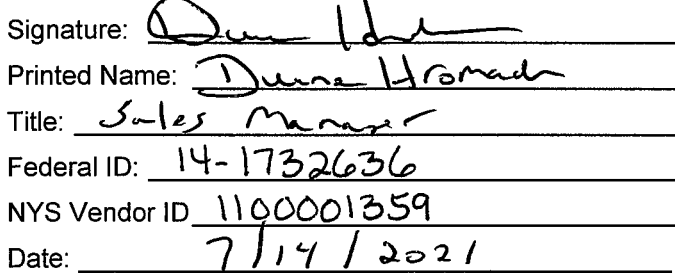 Signature:
Printed Name: Duane Hromada
Title: Sales Manager
Federal ID: 14-1732636
NYS Vendor ID 1100001359
Date: 7/14/2021